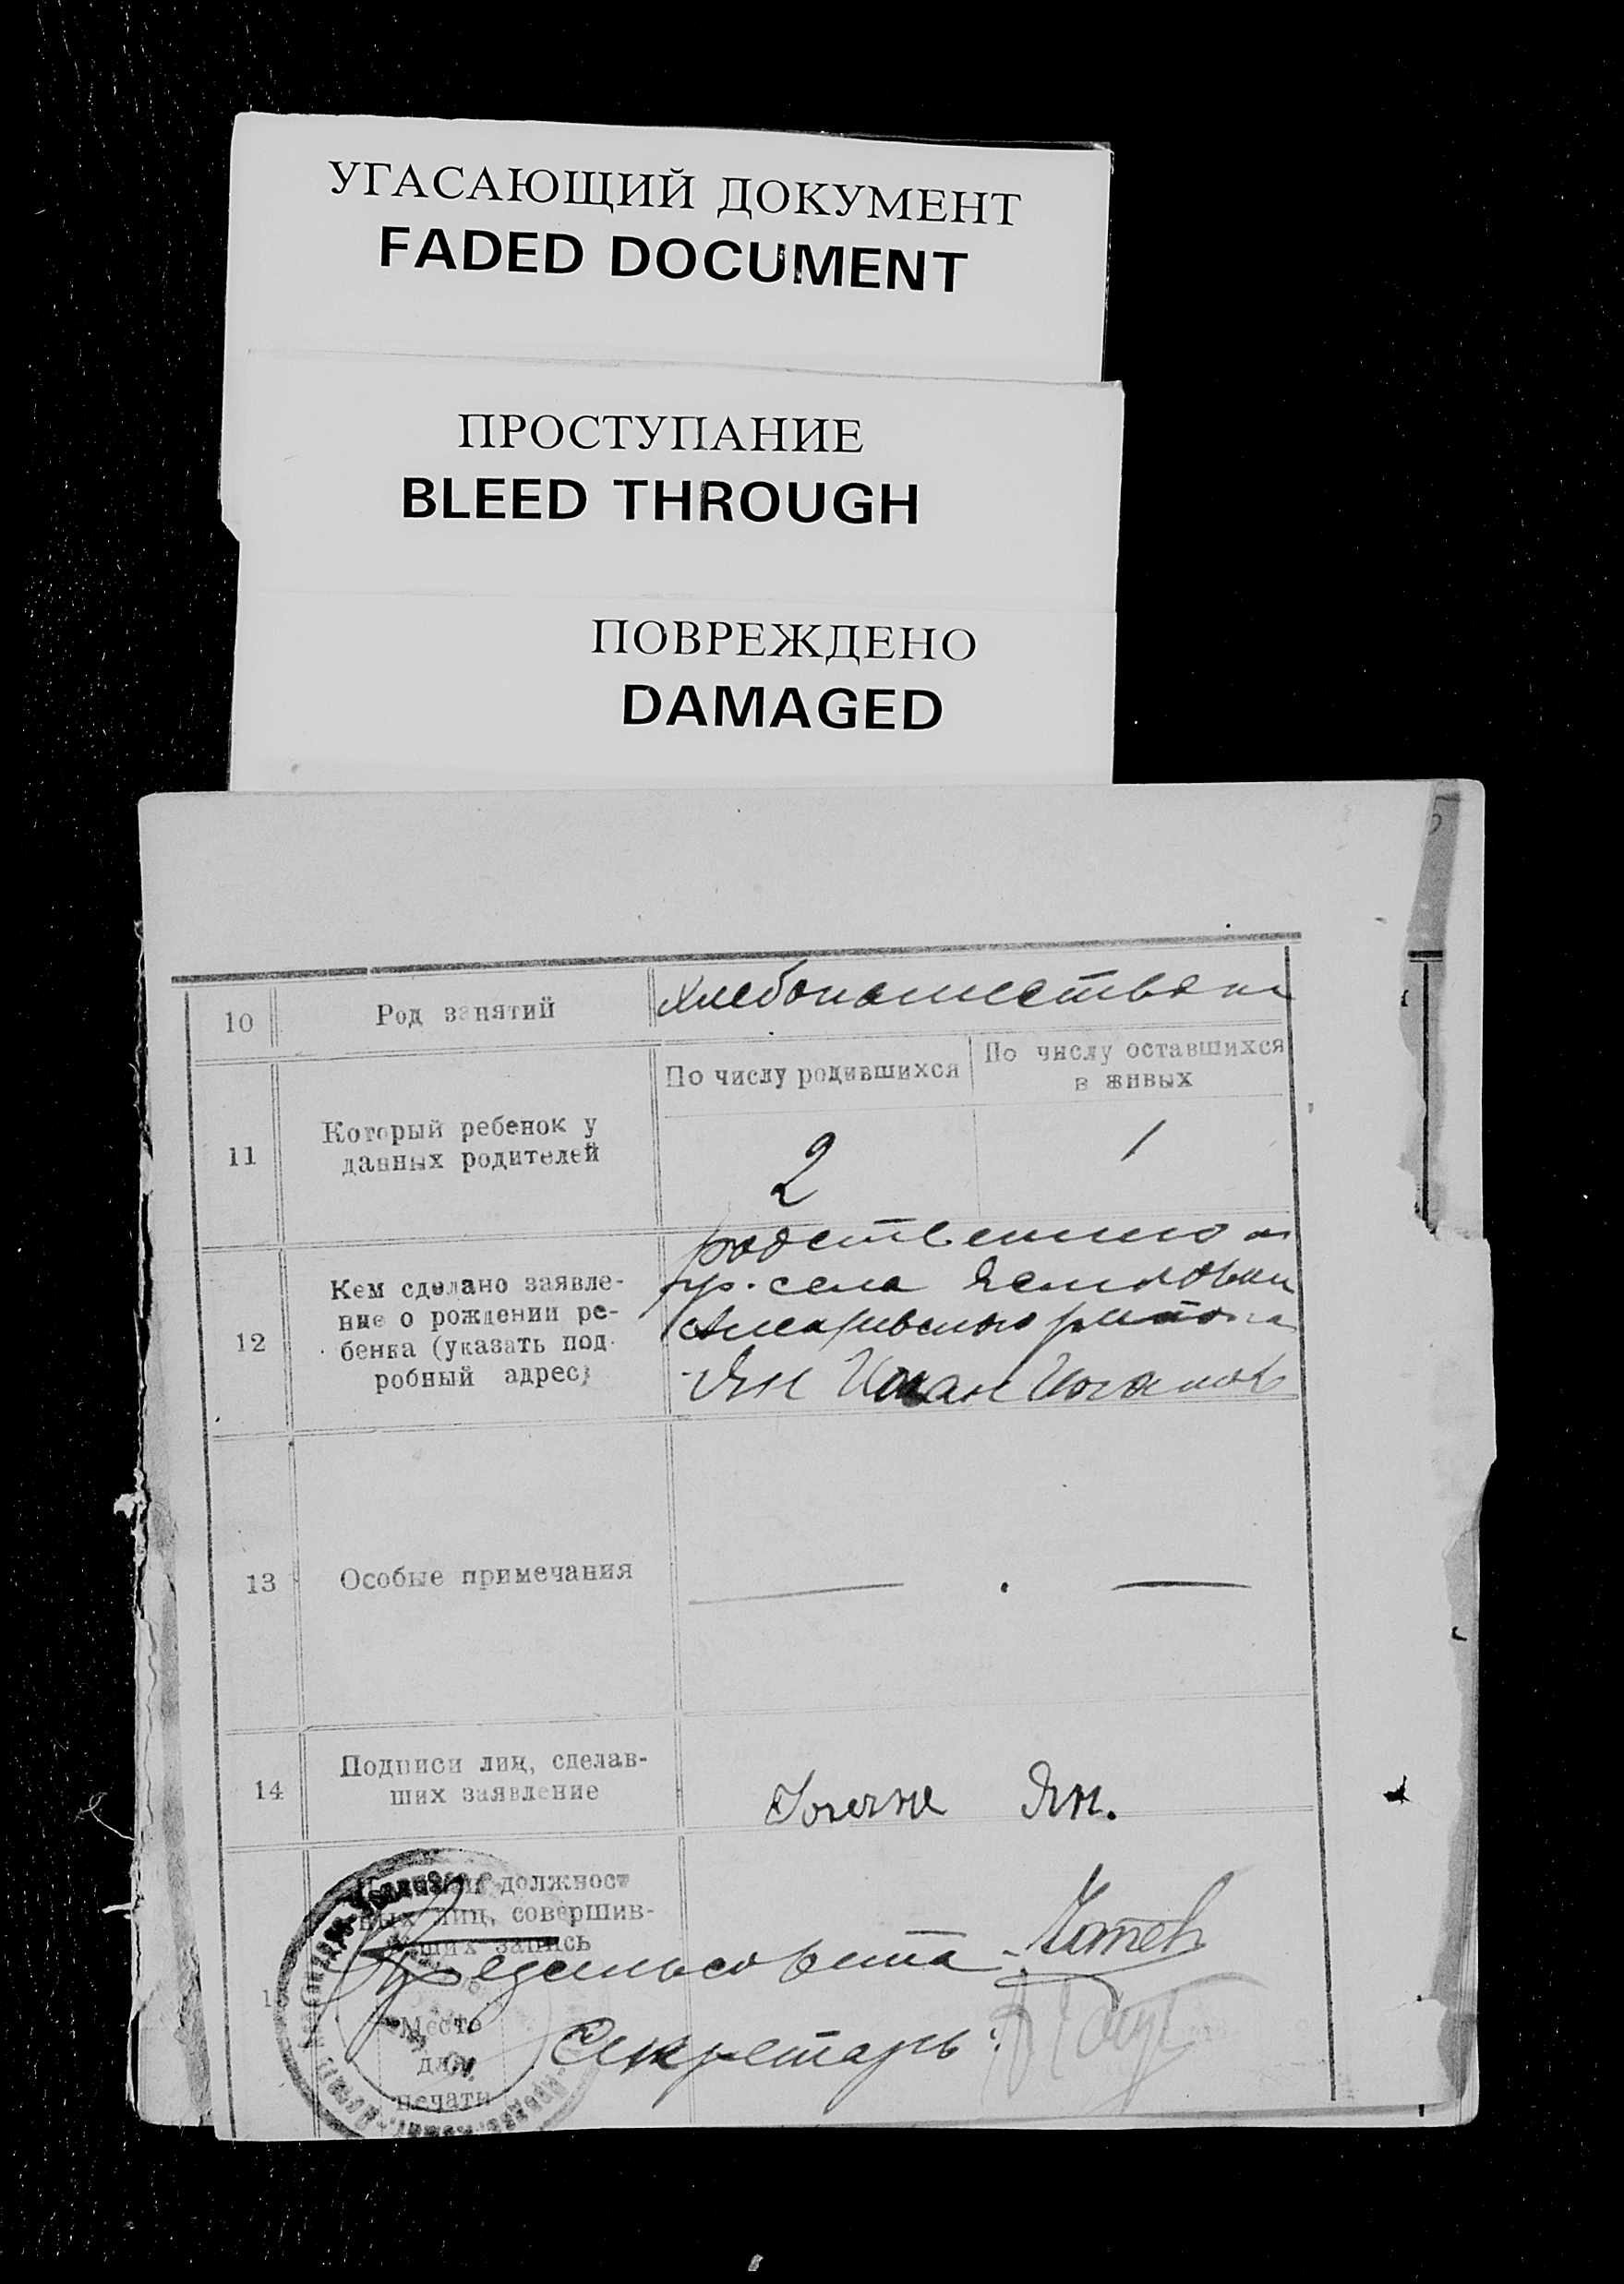 УГАСАЮЩИЙ ДОКУМЕНТ
FADED DOCUMENT
ПРОСТУПАНИЕ
BLEED THROUGH
ПОВРЕЖДЕНО
DAMAGED
10
Род занятий
хлебопашество
11
Который ребенок у
данных родителей
По числу родившихся
2
По числу оставшихся
в живых
1
12
Кем сделано заявле-
ние о рождении ре-
бенка (указать под-
робный адрес)
родственник
гр. села
района
Ян
13
Особые примечания
14
Подписи лиц, сделав-
ших заявление
Ян.
15
должност
ных лиц, совершив-
ших запись
Место
для
печати
Предсельсовета
Секретарь: